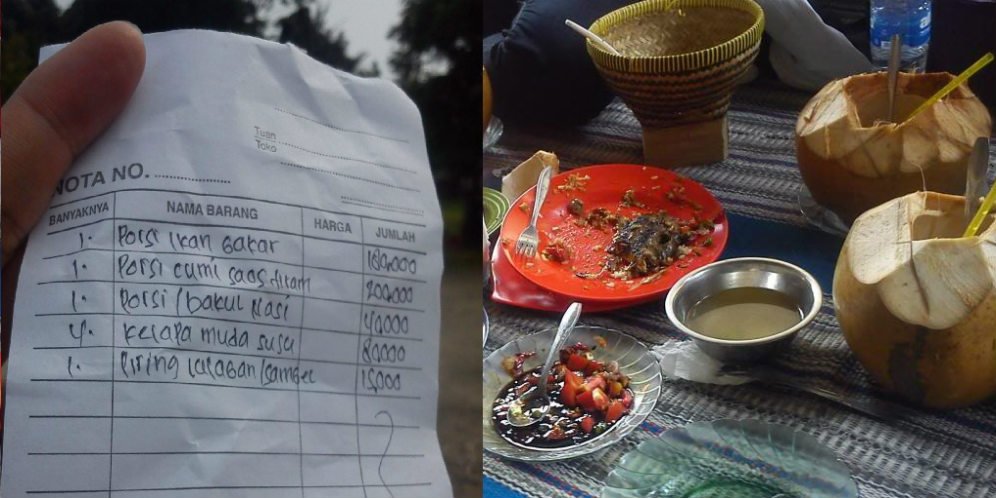 Tuan
Toko
NOTA NO.
BANYAKNYA NAMA BARANG HARGA JUMLAH
1. Porsi ikan bakar 180,000
1. Porsi cumi saos hitam 200,000
1. Porsi / bakul Nasi 40,000
4. kelapa muda susu 80,000
1. Piring lalapan / sambel 15,000